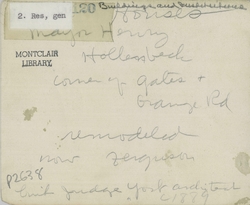 Buildings and Institutions
2. Res, gen
Houses
Mayor Henry
MONTCLAIR
LIBRARY,
Hollenbeck
corner of Gates +
Orange Rd
remodeled
now Ferguson
P2638
Judge Yost architect
c1879